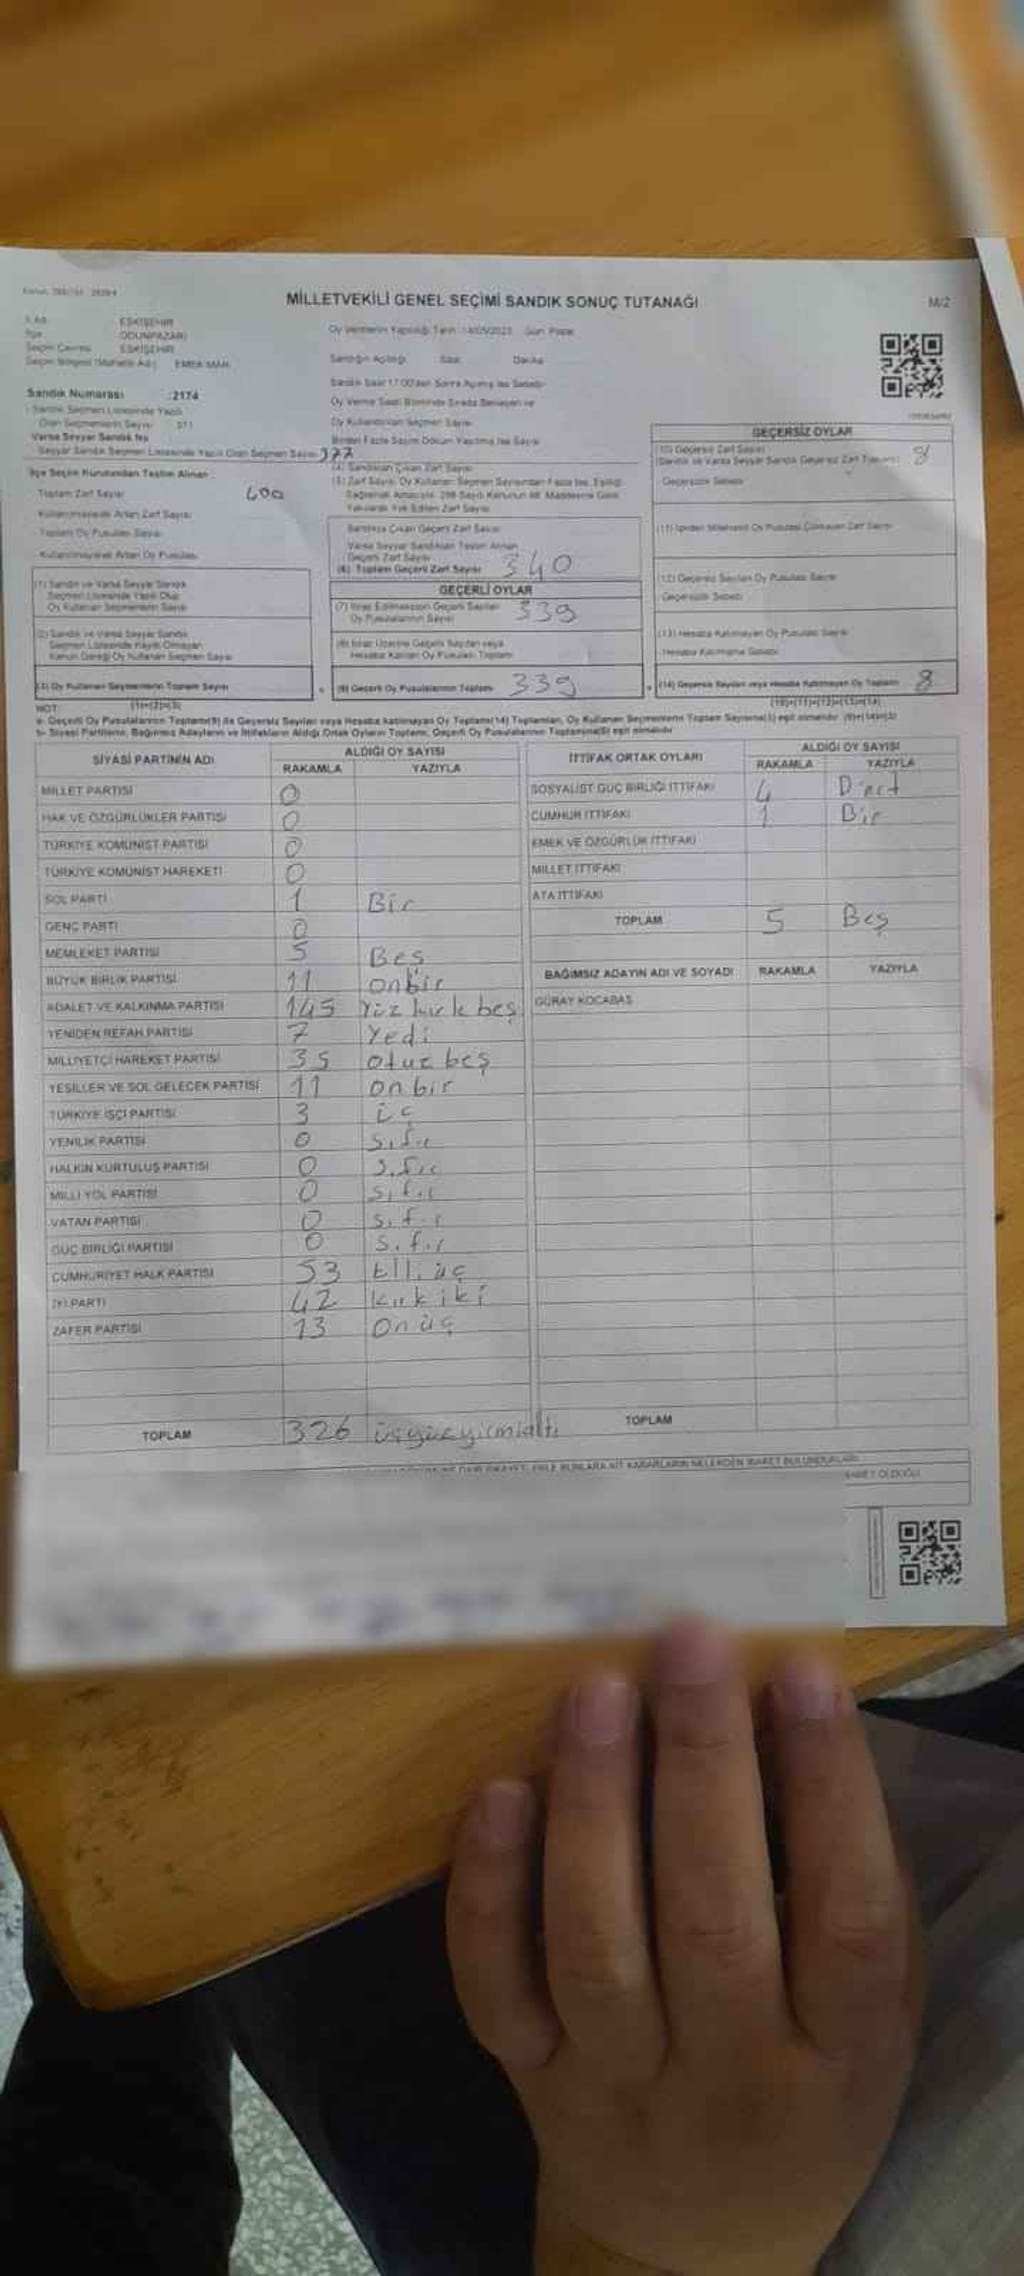 MİLLETVEKİLİ GENEL SEÇİMİ SANDIK SONUÇ TUTANAĞI
M/2
ESKİŞEHİR
ODUNPAZARI
Seçim Çevresi ESKİŞEHİR
EMEK MAH.
Oy Vermenin Yapıldığı Tarih : 14/05/2023 Gün: Pazar
Sandığın Açıldığı Saat: Dakika:
Sandık Numarası :2174
Varsa Seyyar Sandık No
377
İlçe Seçim Kurulundan Teslim Alınan
Toplam Zarf Sayısı 400
Kullanılmayarak Artan Zarf Sayısı
Toplam Oy Pusulası Sayısı
Kullanılmayarak Artan Oy Pusulası
(1) Sandık ve Varsa Seyyar Sandık
Seçmen Listesinde Yazılı Olup
Oy Kullanan Seçmenlerin Sayısı
(2) Sandık ve Varsa Seyyar Sandık
Seçmen Listesinde Kayıtlı Olmayan
Kanun Gereği Oy Kullanan Seçmen Sayısı
(3) Oy Kullanan Seçmenlerin Toplam Sayısı
(1)+(2)=(3)
(4) Sandıktan Çıkan Zarf Sayısı
Sandıkta Çıkan Geçerli Zarf Sayısı
Varsa Seyyar Sandıktan Teslim Alınan
Geçerli Zarf Sayısı
(6) Toplam Geçerli Zarf Sayısı 340
GEÇERLİ OYLAR
(7) İtiraz Edilmeksizin Geçerli Sayılan
Oy Pusulalarının Sayısı 339
(8) İtiraz Üzerine Geçerli Sayılan veya
Hesaba Katılan Oy Pusulası Toplamı
(9) Geçerli Oy Pusulalarının Toplamı 339
GEÇERSİZ OYLAR
(10) Geçersiz Zarf Sayısı
8
Geçersizlik Sebebi
(12) Geçersiz Sayılan Oy Pusulası Sayısı
Geçersizlik Sebebi
(13) Hesaba Katılmayan Oy Pusulası Sayısı
Hesaba Katılmama Sebebi
(14) Geçersiz Sayılan veya Hesaba Katılmayan Oy Toplamı 8
(10)+(11)+(12)+(13)=(14)
NOT:
a- Geçerli Oy Pusulalarının Toplamı(9) ile Geçersiz Sayılan veya Hesaba katılmayan Oy Toplamı(14) Toplamları, Oy Kullanan Seçmenlerin Toplam Sayısına(3) eşit olmalıdır. (9)+(14)=(3)
b- Siyasi Partilerin, Bağımsız Adayların ve İttifakların Aldığı Ortak Oyların Toplamı, Geçerli Oy Pusulalarının Toplamına(9) eşit olmalıdır.
SİYASİ PARTİNİN ADI ALDIĞI OY SAYISI
RAKAMLA YAZIYLA
MİLLET PARTİSİ 0
HAK VE ÖZGÜRLÜKLER PARTİSİ 0
TÜRKİYE KOMÜNİST PARTİSİ 0
TÜRKİYE KOMÜNİST HAREKETİ 0
SOL PARTİ 1 Bir
GENÇ PARTİ 0
MEMLEKET PARTİSİ 5 Beş
BÜYÜK BİRLİK PARTİSİ 11 onbir
ADALET VE KALKINMA PARTİSİ 145 Yüz kırk beş
YENİDEN REFAH PARTİSİ 7 Yedi
MİLLİYETÇİ HAREKET PARTİSİ 35 otuz beş
YEŞİLLER VE SOL GELECEK PARTİSİ 11 on bir
TÜRKİYE İŞÇİ PARTİSİ 3 üç
YENİLİK PARTİSİ 0 sıfır
HALKIN KURTULUŞ PARTİSİ 0 sıfır
MİLLİ YOL PARTİSİ 0 sıfır
VATAN PARTİSİ 0 sıfır
GÜÇ BİRLİĞİ PARTİSİ 0 sıfır
CUMHURİYET HALK PARTİSİ 53 Elli üç
İYİ PARTİ 42 Kırk iki
ZAFER PARTİSİ 13 On üç
TOPLAM 326 üçyüzyirmialtı
İTTİFAK ORTAK OYLARI ALDIĞI OY SAYISI
RAKAMLA YAZIYLA
SOSYALİST GÜÇ BİRLİĞİ İTTİFAKI 4 Dört
CUMHUR İTTİFAKI 1 Bir
EMEK VE ÖZGÜRLÜK İTTİFAKI
MİLLET İTTİFAKI
ATA İTTİFAKI
TOPLAM 5 Beş
BAĞIMSIZ ADAYIN ADI VE SOYADI RAKAMLA YAZIYLA
GÜRAY KOCABAŞ
TOPLAM